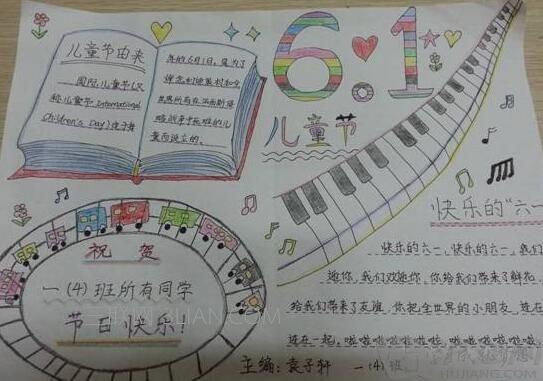 儿童节由来
国际儿童节(又
称儿童节,International
Children's Day)定于每
年的6月1日。是为了
悼念利迪策村和全
世界所有在法西斯侵
略战争中死难的儿
童而设立的。
6.1
儿童节
快乐的“六一
快乐的六一,快乐的六一,我们
迎你,我们欢迎你,你给我们带来了鲜花,
给我们带来了友谊,你把全世界的小朋友,连在
连在一起。啦啦啦啦啦啦啦啦,啦啦啦啦啦啦啦
祝贺
一(4)班所有同学
节日快乐!
主编:袁子轩 一(4)班